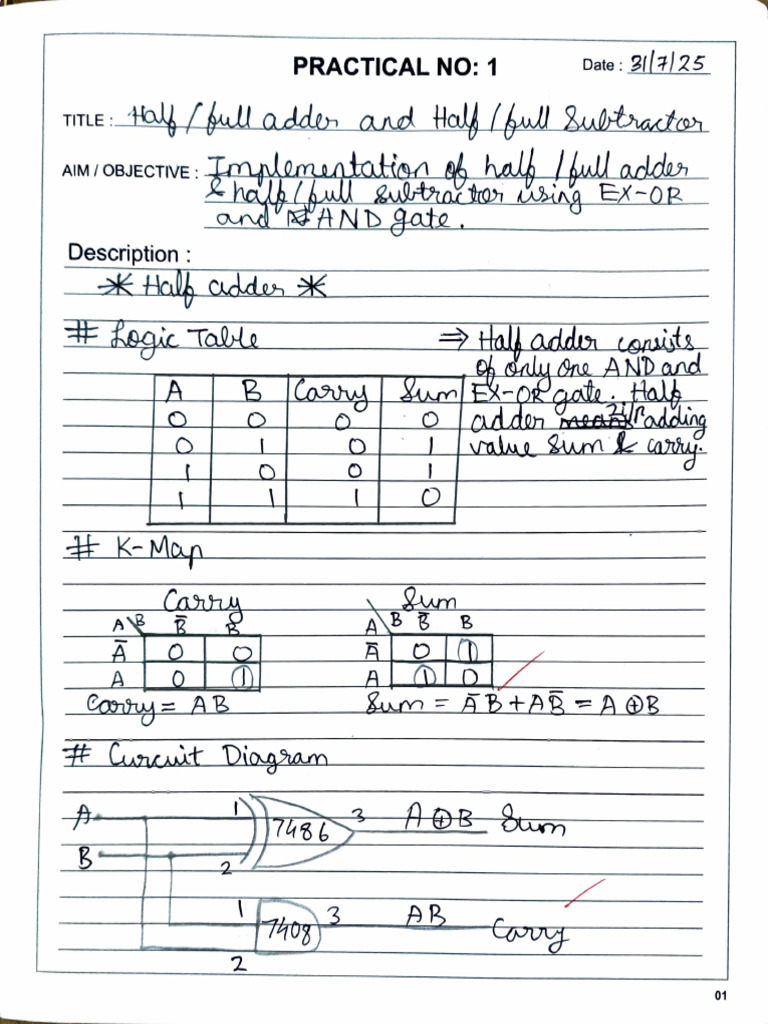 PRACTICAL NO: 1
Date : 31/7/25
TITLE : Half / full adder and Half / full Subtractor
AIM / OBJECTIVE : Implementation of half / full adder
& half / full subtractor using EX-OR
and AND gate.
Description :
* Half adder *
# Logic Table
⇒ Half adder consists
of only one AND and
EX-OR gate. Half
adder adding
value Sum & carry.
A B Carry Sum
0 0 0 0
0 1 0 1
1 0 0 1
1 1 1 0
# K-Map
Carry
A B B̅ B
A̅ 0 0
A 0 1
Carry = AB
Sum
A B B̅ B
A̅ 0 1
A 1 0
Sum = A̅B + AB̅ = A ⊕ B
# Curcuit Diagram
A 1 7486 3 A ⊕ B Sum
B 2
1 7408 3 AB Carry
2
01